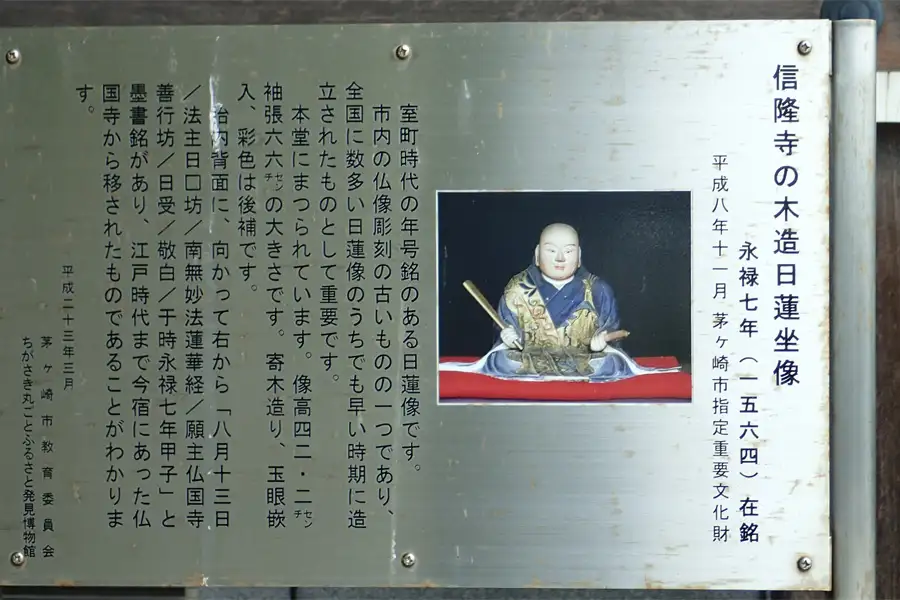 信隆寺の木造日蓮坐像
永禄七年（一五六四）在銘
平成八年十一月 茅ヶ崎市指定重要文化財
室町時代の年号銘のある日蓮像です。
市内の仏像彫刻の古いものの一つであり、
全国に数多い日蓮像のうちでも早い時期に造
立されたものとして重要です。
本堂にまつられています。像高四二・二センチ
袖張六六センチの大きさです。寄木造り、玉眼嵌
入、彩色は後補です。
胎内背面に、向かって右から「八月十三日
／法主日□坊／南無妙法蓮華経／願主仏国寺
善行坊／日受／敬白／于時永禄七年甲子」と
墨書銘があり、江戸時代まで今宿にあった仏
国寺から移されたものであることがわかりま
す。
平成二十三年三月
茅ヶ崎市教育委員会
ちがさき丸ごとふるさと発見博物館